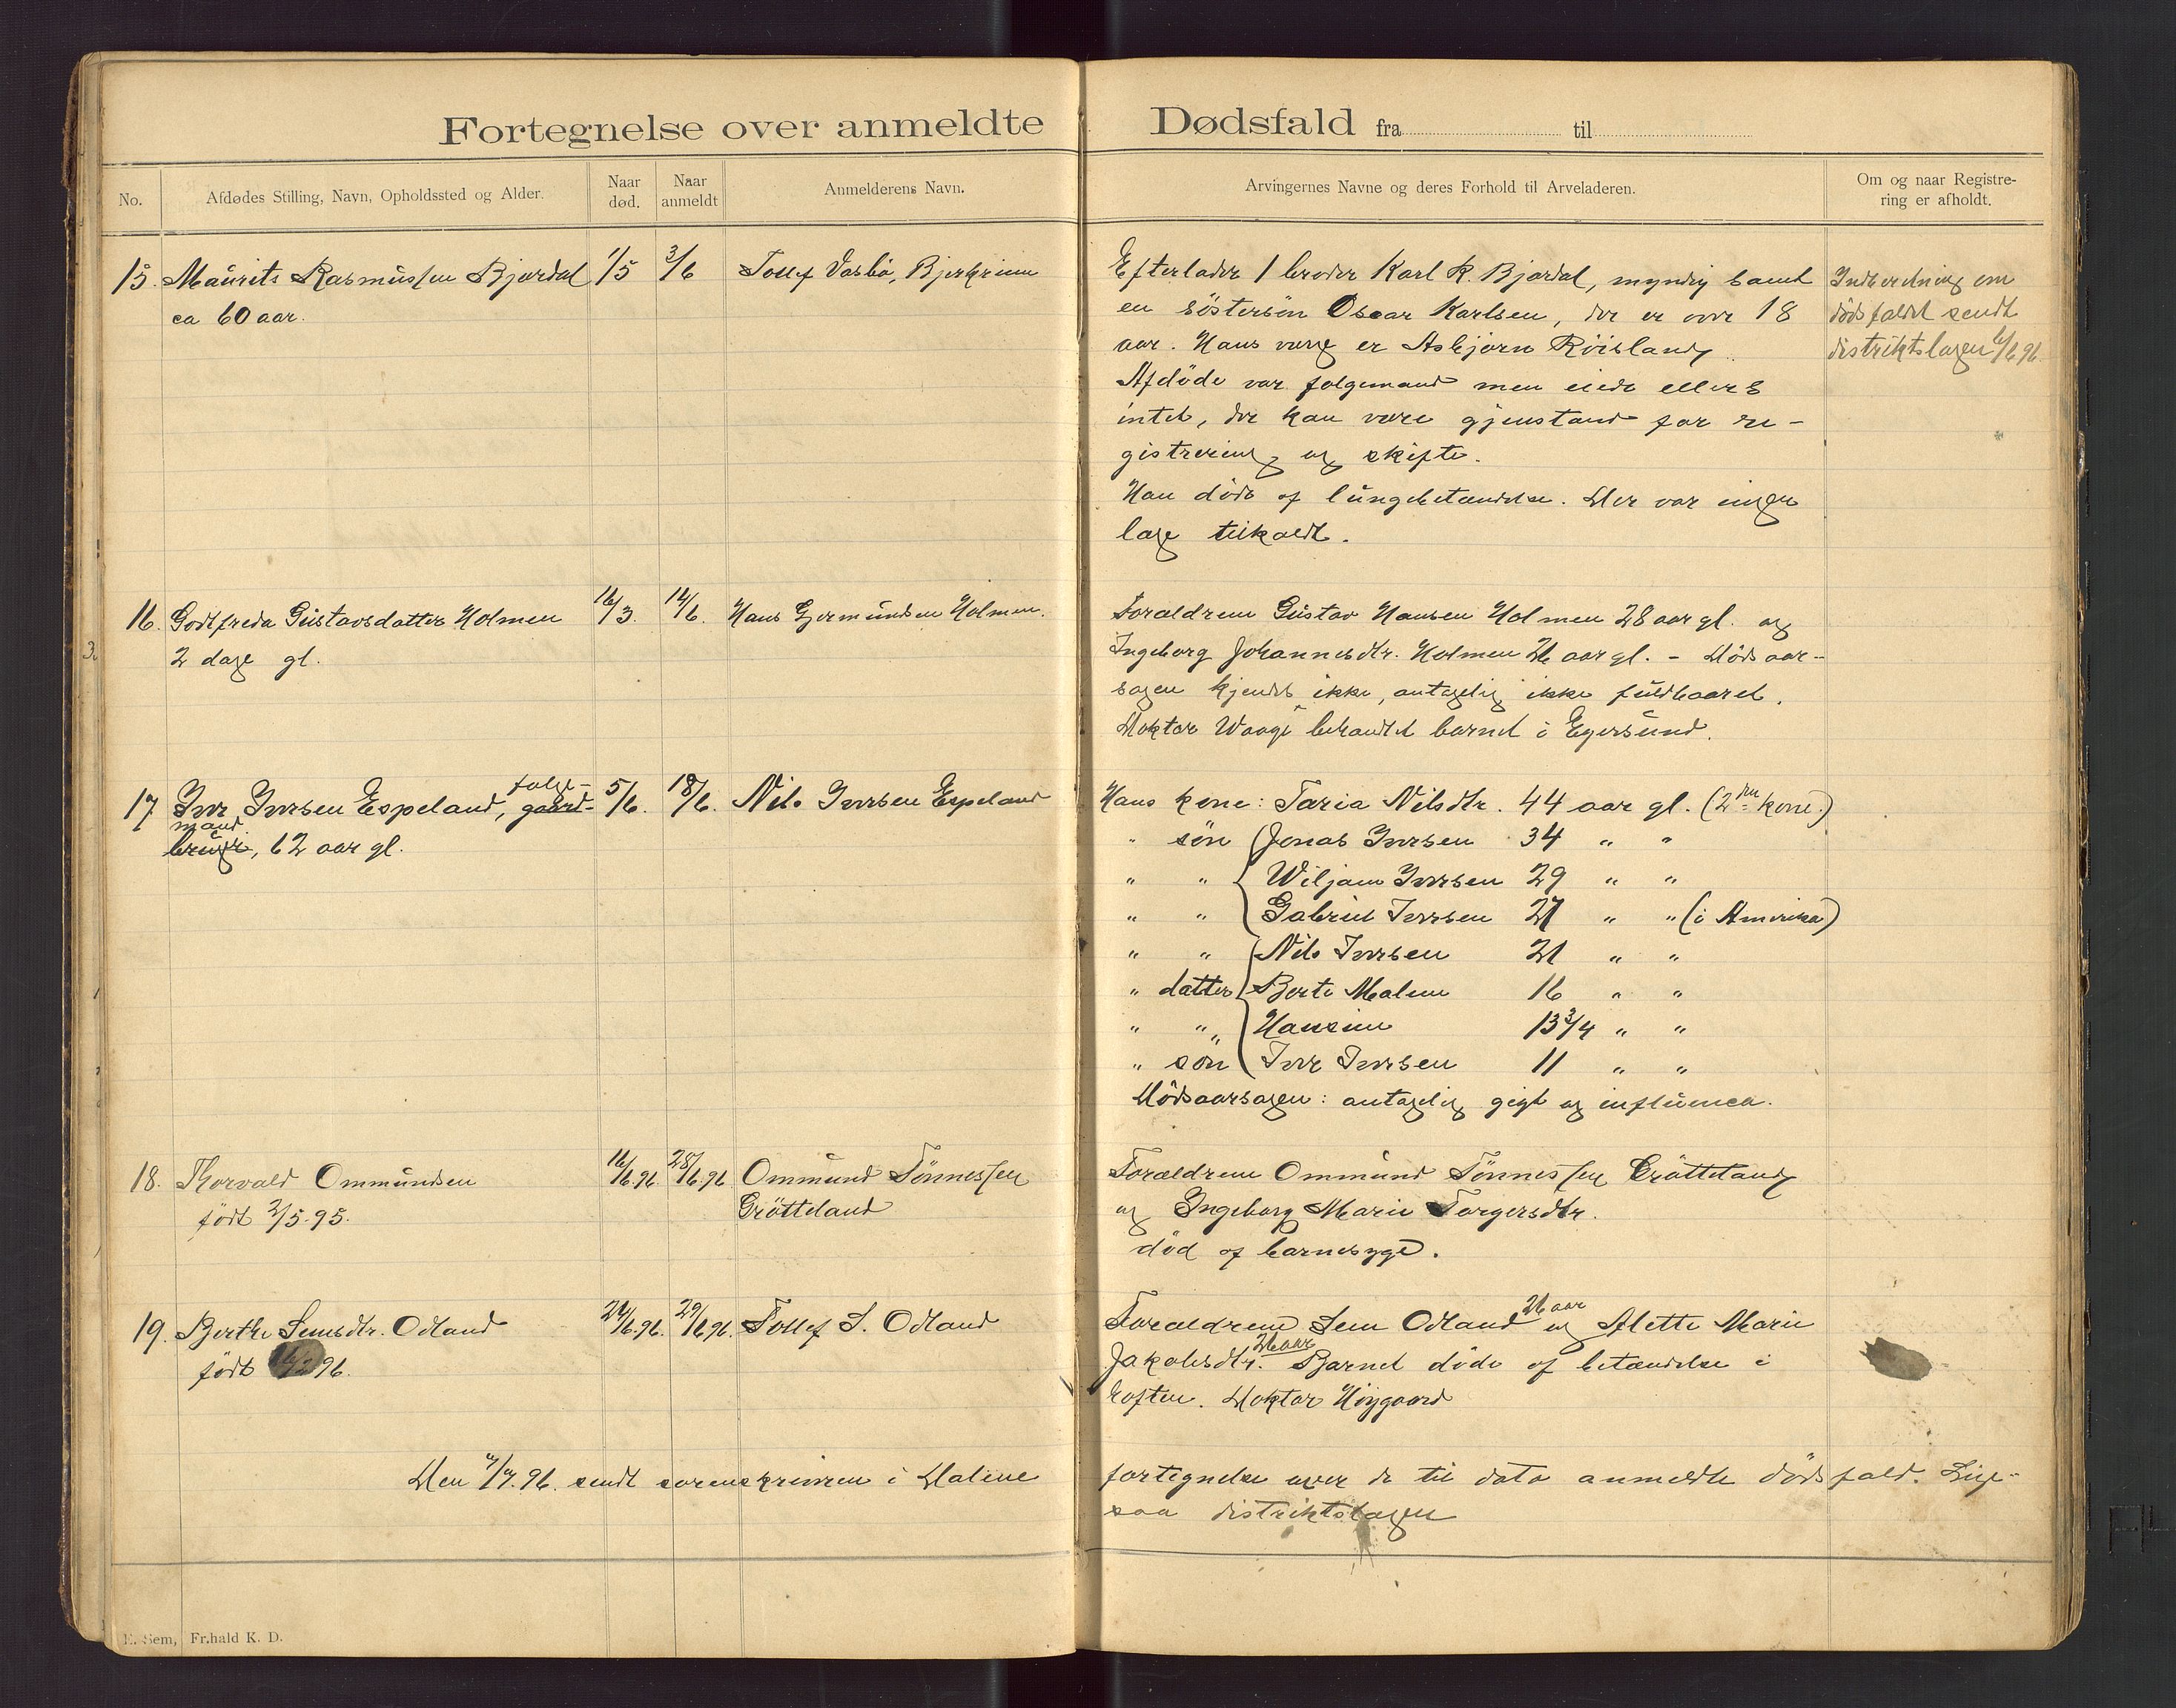 Fortegnelse over anmeldte Dødsfald fra til
No.
Afdødes Stilling, Navn, Opholdssted og Alder.
Naar død.
Naar anmeldt
Anmelderens Navn.
Arvingernes Navne og deres Forhold til Arveladeren.
Om og naar Registre-
ring er afholdt.
15. Maurits Rasmussen Bjordal 1/5 3/6 Tollef Vasbø, Bjerkrem
ca 60 aar.
Efterlader 1 broder Karl R. Bjordal, myndig samt
en söstersön Oscar Karlsen, der er over 18
aar. Hans værge er Asbjørn Röisland.
Afdöde var folgemand men eiede ellers
intet, der kan være gjenstand for re-
gistrering og skifte.
Han döde af lungebetændelse. Der var ingen
læge tilkaldt.
Indberetning om
dödsfaldet sendt
distriktslægen 6/6 96.
16. Godtfreda Gustavsdatter Holmen 16/3. 14/6. Hans Gjermundsen Holmen.
2 dage gl.
Forældrene Gustav Hansen Holmen 28 aar gl. og
Ingeborg Johannesdtr. Holmen 26 aar gl. - Dödsaar-
sagen kjendes ikke, antagelig ikke fuldbaaret.
Doktor Waage behandlet barnet i Egersund.
17 Iver Iversen Espeland, gaard- 5/6. 18/6. Nils Iversen Espeland
folge-
mand
bruger, 62 aar gl.
Hans kone: Taria Nilsdtr. 44 aar gl. (2den kone.)
" sön Jonas Iversen 34 " "
" " Wiljam Iversen 29 " "
" " Gabriel Iversen 27 " " (i Amerika)
" " Nils Iversen 21 " "
" datter Berte Malene 16 " "
" " Hansine 13 3/4 " "
" sön Iver Iversen 11 " "
Dödsaarsagen: antagelig gigt og influenca.
18. Thorvald Ommundsen 16/6.96. 28/6.96 Ommund Tönnessen
födt 2/5.95. Grötteland
Forældrene Ommund Tönnessen Grötteland
og Ingeborg Marie Torgersdtr.
död af barnesyge.
19. Berthe Semsdtr. Odland 24/6.96. 29/6.96. Tollef S. Odland
födt 96.
Forældrene Sem Odland 26 aar og Mette Marie
Jakobsdtr. 26 aar Barnet döde af betændelse i
hoften. Doktor Höygaard
Den 4/7.96. sendt sorenskriveren i Dalene fortegnelse over de til dato anmeldte dödsfald. Lige-
saa distriktslægen
E. Sem, Fr.hald K. D.